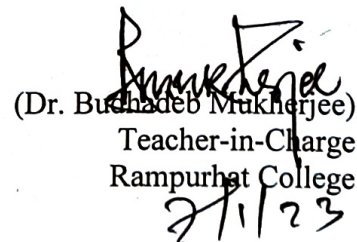 BMukherjee
(Dr. Budhadeb Mukherjee)
Teacher-in-Charge
Rampurhat College
7/1/23